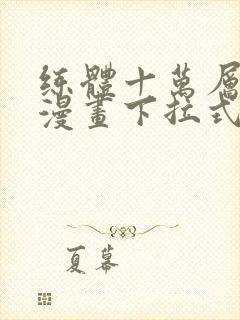 练體十萬層
漫畫下拉式
夏幕